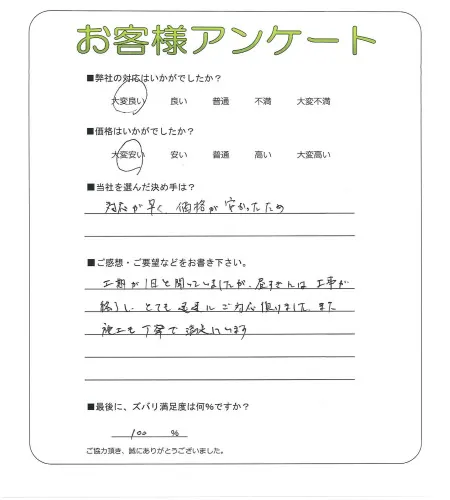 お客様アンケート
■弊社の対応はいかがでしたか？
大変良い　良い　普通　不満　大変不満
■価格はいかがでしたか？
大変安い　安い　普通　高い　大変高い
■当社を選んだ決め手は？
対応が早く 価格が安かったため
■ご感想・ご要望などをお書き下さい。
工期が1日と聞いていましたが、昼すぎには工事が
終了し、とても迅速にご対応頂けました。また
施工も丁寧で満足しています
■最後に、ズバリ満足度は何%ですか？
100 %
ご協力頂き、誠にありがとうございました。